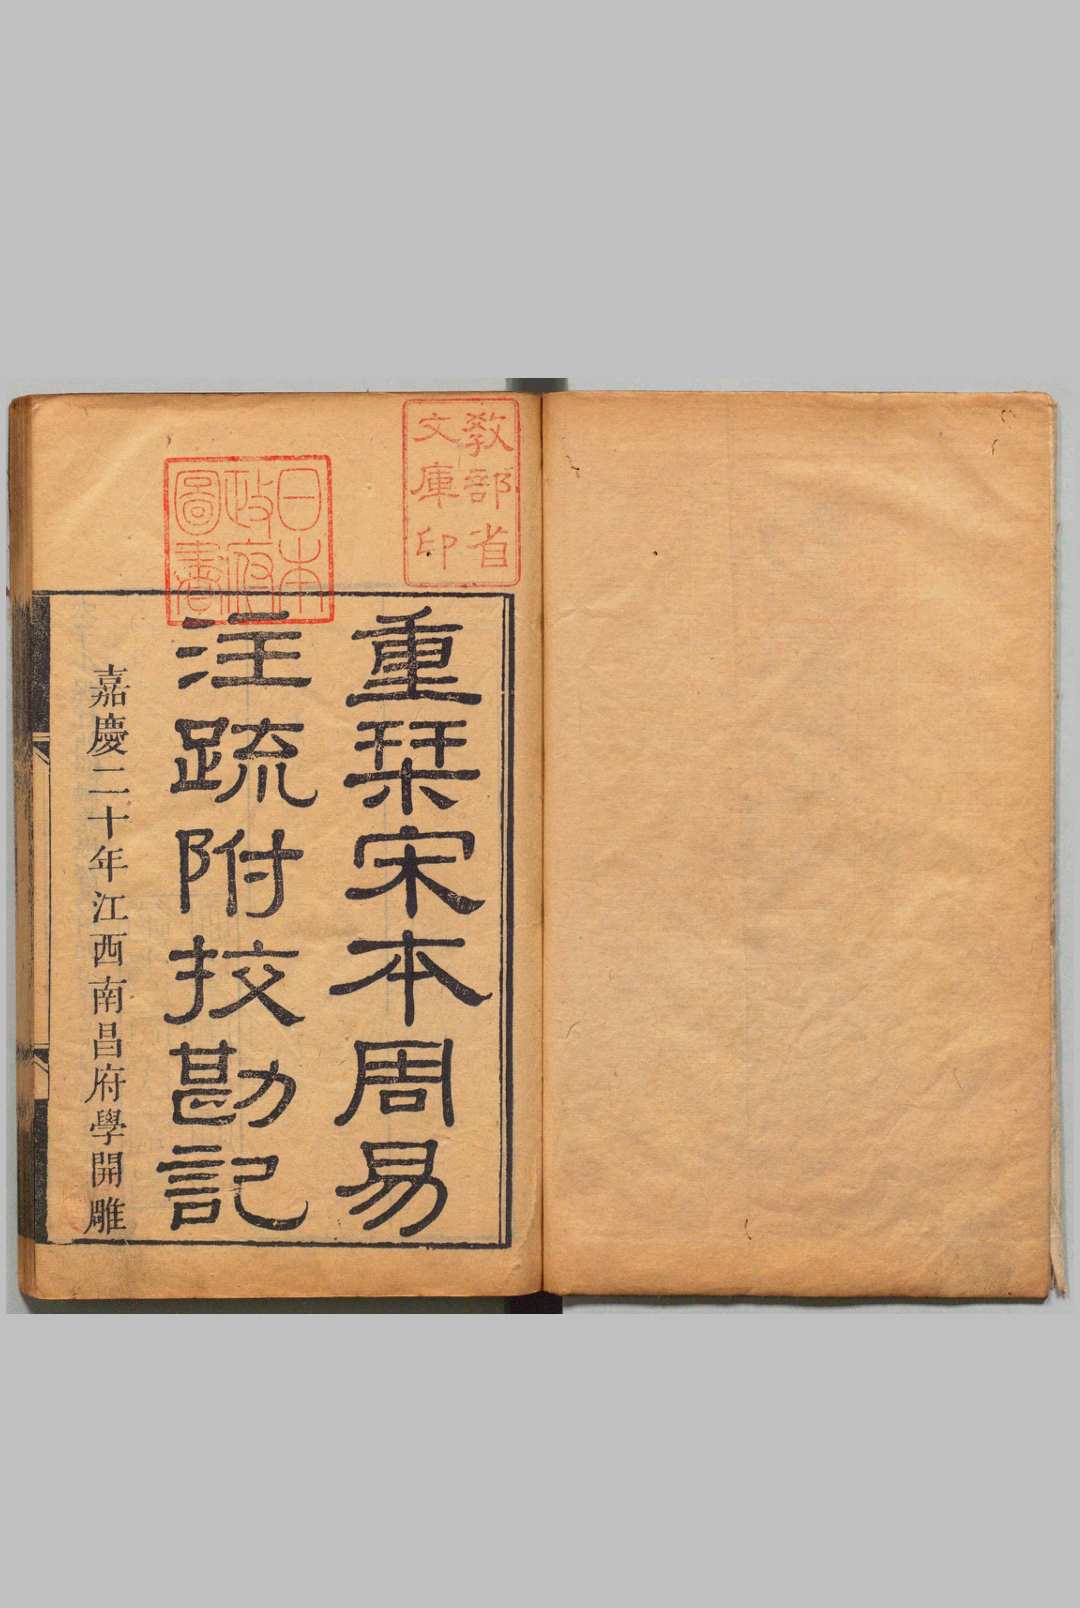 教部省
文庫印
日本
政府
圖書
重栞宋本周易
注疏附挍勘記
嘉慶二十年江西南昌府學開雕